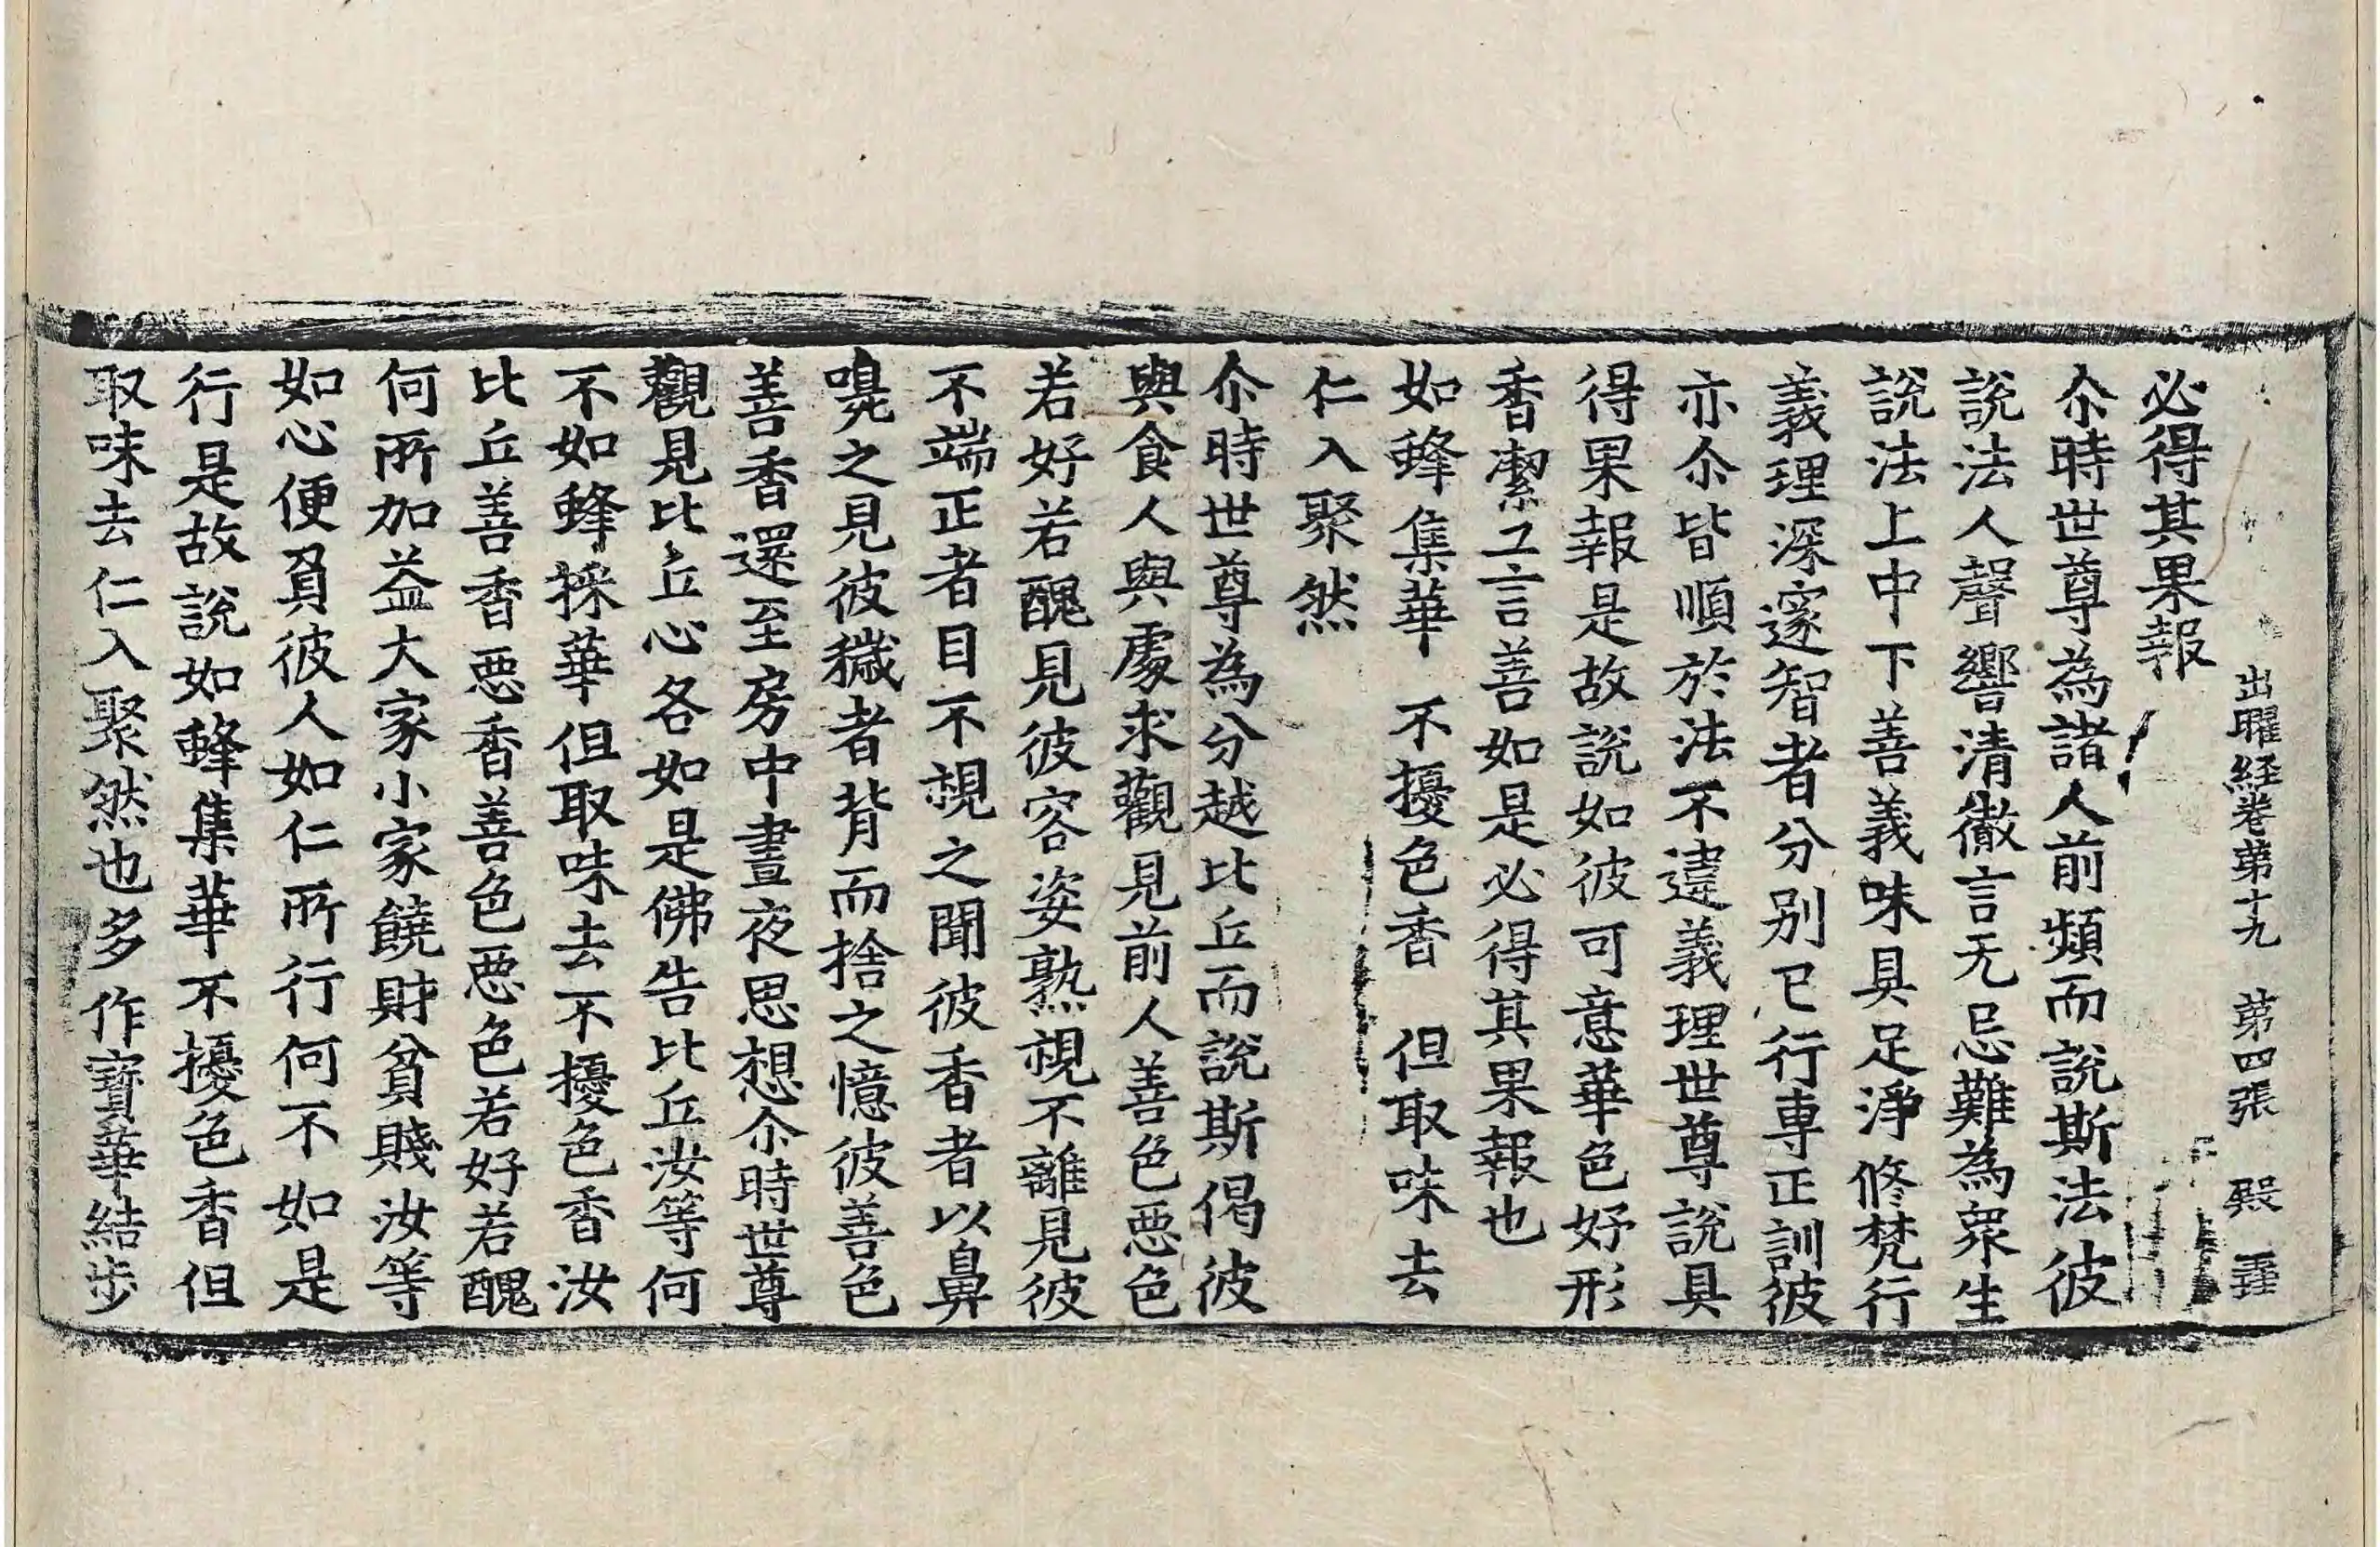 出曜経卷苐十九　苐四張　殿
必得其果報
尒時世尊為諸人前頻而說斯法彼
說法人聲響清徹言无忌難為衆生
說法上中下善義味具足淨修梵行
義理深邃智者分別已行專正訓彼
亦尒皆順於法不違義理世尊說具
得果報是故說如彼可意華色好形
香潔工言善如是必得其果報也
如蜂集華　不擾色香　但取味去
仁入聚然
尒時世尊為分越比丘而說斯偈彼
與食人與處求觀見前人善色惡色
若好若醜見彼容姿熟視不離見彼
不端正者目不視之聞彼香者以鼻
嗅之見彼穢者背而捨之憶彼善色
善香還至房中晝夜思想尒時世尊
觀見比丘心各如是佛告比丘汝等何
不如蜂採華但取味去不擾色香汝
比丘善香惡香善色惡色若好若醜
何所加益大家小家饒財貧賤汝等
如心便負彼人如仁所行何不如是
行是故說如蜂集華不擾色香但
取味去仁入聚然也多作寶華結步